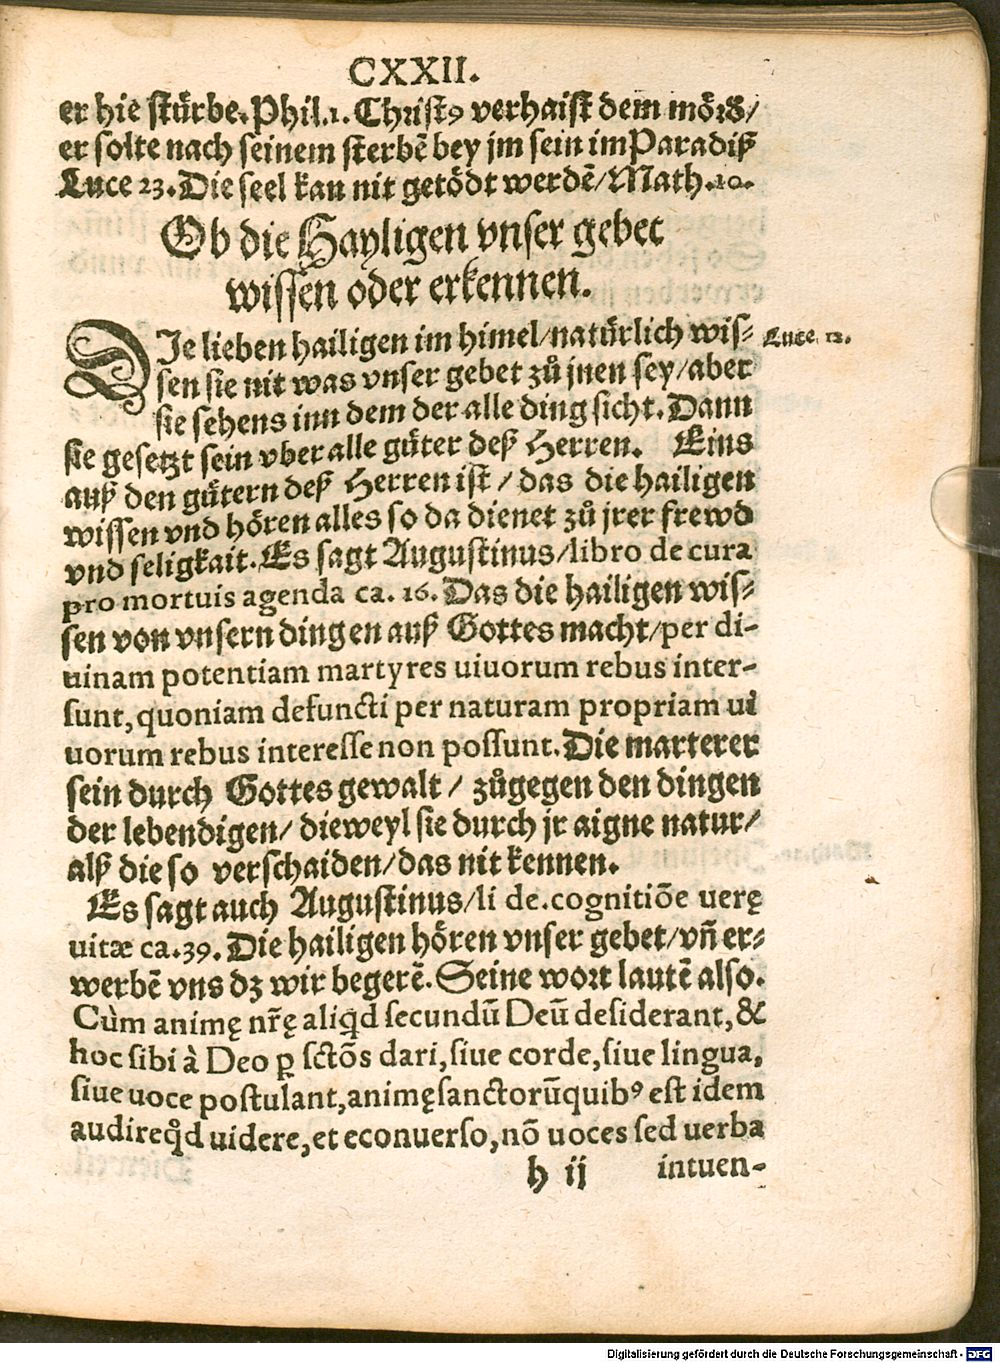 CXXII.
er hie stürbe. Phil. 1. Christꝰ verhaist dem mörd/
er solte nach seinem sterbē bey jm sein im Paradiß
Luce 23. Die seel kan nit getödt werdē/Math. 10.
Ob die Hayligen vnser gebet
wissen oder erkennen.
DIe lieben hailigen im himel/natürlich wis⸗
Luce. 12.
sen sie nit was vnser gebet zů jnen sey/aber
sie sehens inn dem der alle ding sicht. Dann
sie gesetzt sein vber alle güter deß Herren. Eins
auß den gütern deß Herren ist / das die hailigen
wissen vnd hören alles so da dienet zů jrer frewd
vnd seligkait. Es sagt Augustinus/libro de cura
pro mortuis agenda ca. 16. Das die hailigen wis⸗
sen von vnsern dingen auß Gottes macht/per di-
uinam potentiam martyres uiuorum rebus inter-
sunt, quoniam defuncti per naturam propriam ui
uorum rebus interesse non possunt. Die marterer
sein durch Gottes gewalt / zůgegen den dingen
der lebendigen/ dieweyl sie durch jr aigne natur/
alß die so verschaiden/das nit kennen.
Es sagt auch Augustinus/li de. cognitiōe uerę
uitæ ca. 39. Die hailigen hören vnser gebet/vn̄ er⸗
werbē vns dz wir begerē. Seine wort lautē also.
Cùm animę nr̃ę aliqd secundū Deū desiderant, &
hoc sibi à Deo ꝑ sctōs dari, siue corde, siue lingua,
siue uoce postulant, animę sanctorū quibꝰ est idem
audire qd uidere, et econuerso, nō uoces sed uerba
h ij intuen-
Digitalisierung gefördert durch die Deutsche Forschungsgemeinschaft - DFG